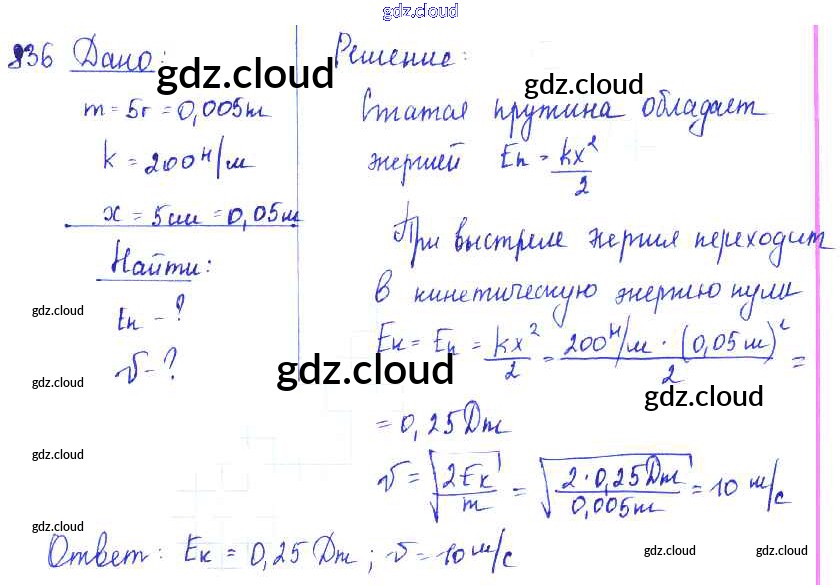 gdz.cloud
836 Дано:
m = 5г = 0,005кг
k = 200 Н/м
x = 5см = 0,05м
Найти:
Eк - ?
v - ?
Решение:
Сжатая пружина обладает
энергией Eп = kx²/2
При выстреле энергия переходит
в кинетическую энергию пули
Eк = Eп = kx²/2 = 200 Н/м · (0,05 м)²/2 =
= 0,25 Дж
v = √(2Eк/m) = √(2 · 0,25 Дж/0,005кг) = 10 м/с
Ответ: Eк = 0,25 Дж; v = 10 м/с
gdz.cloud
gdz.cloud
gdz.cloud
gdz.cloud
gdz.cloud
gdz.cloud
gdz.cloud
gdz.cloud
gdz.cloud
gdz.cloud